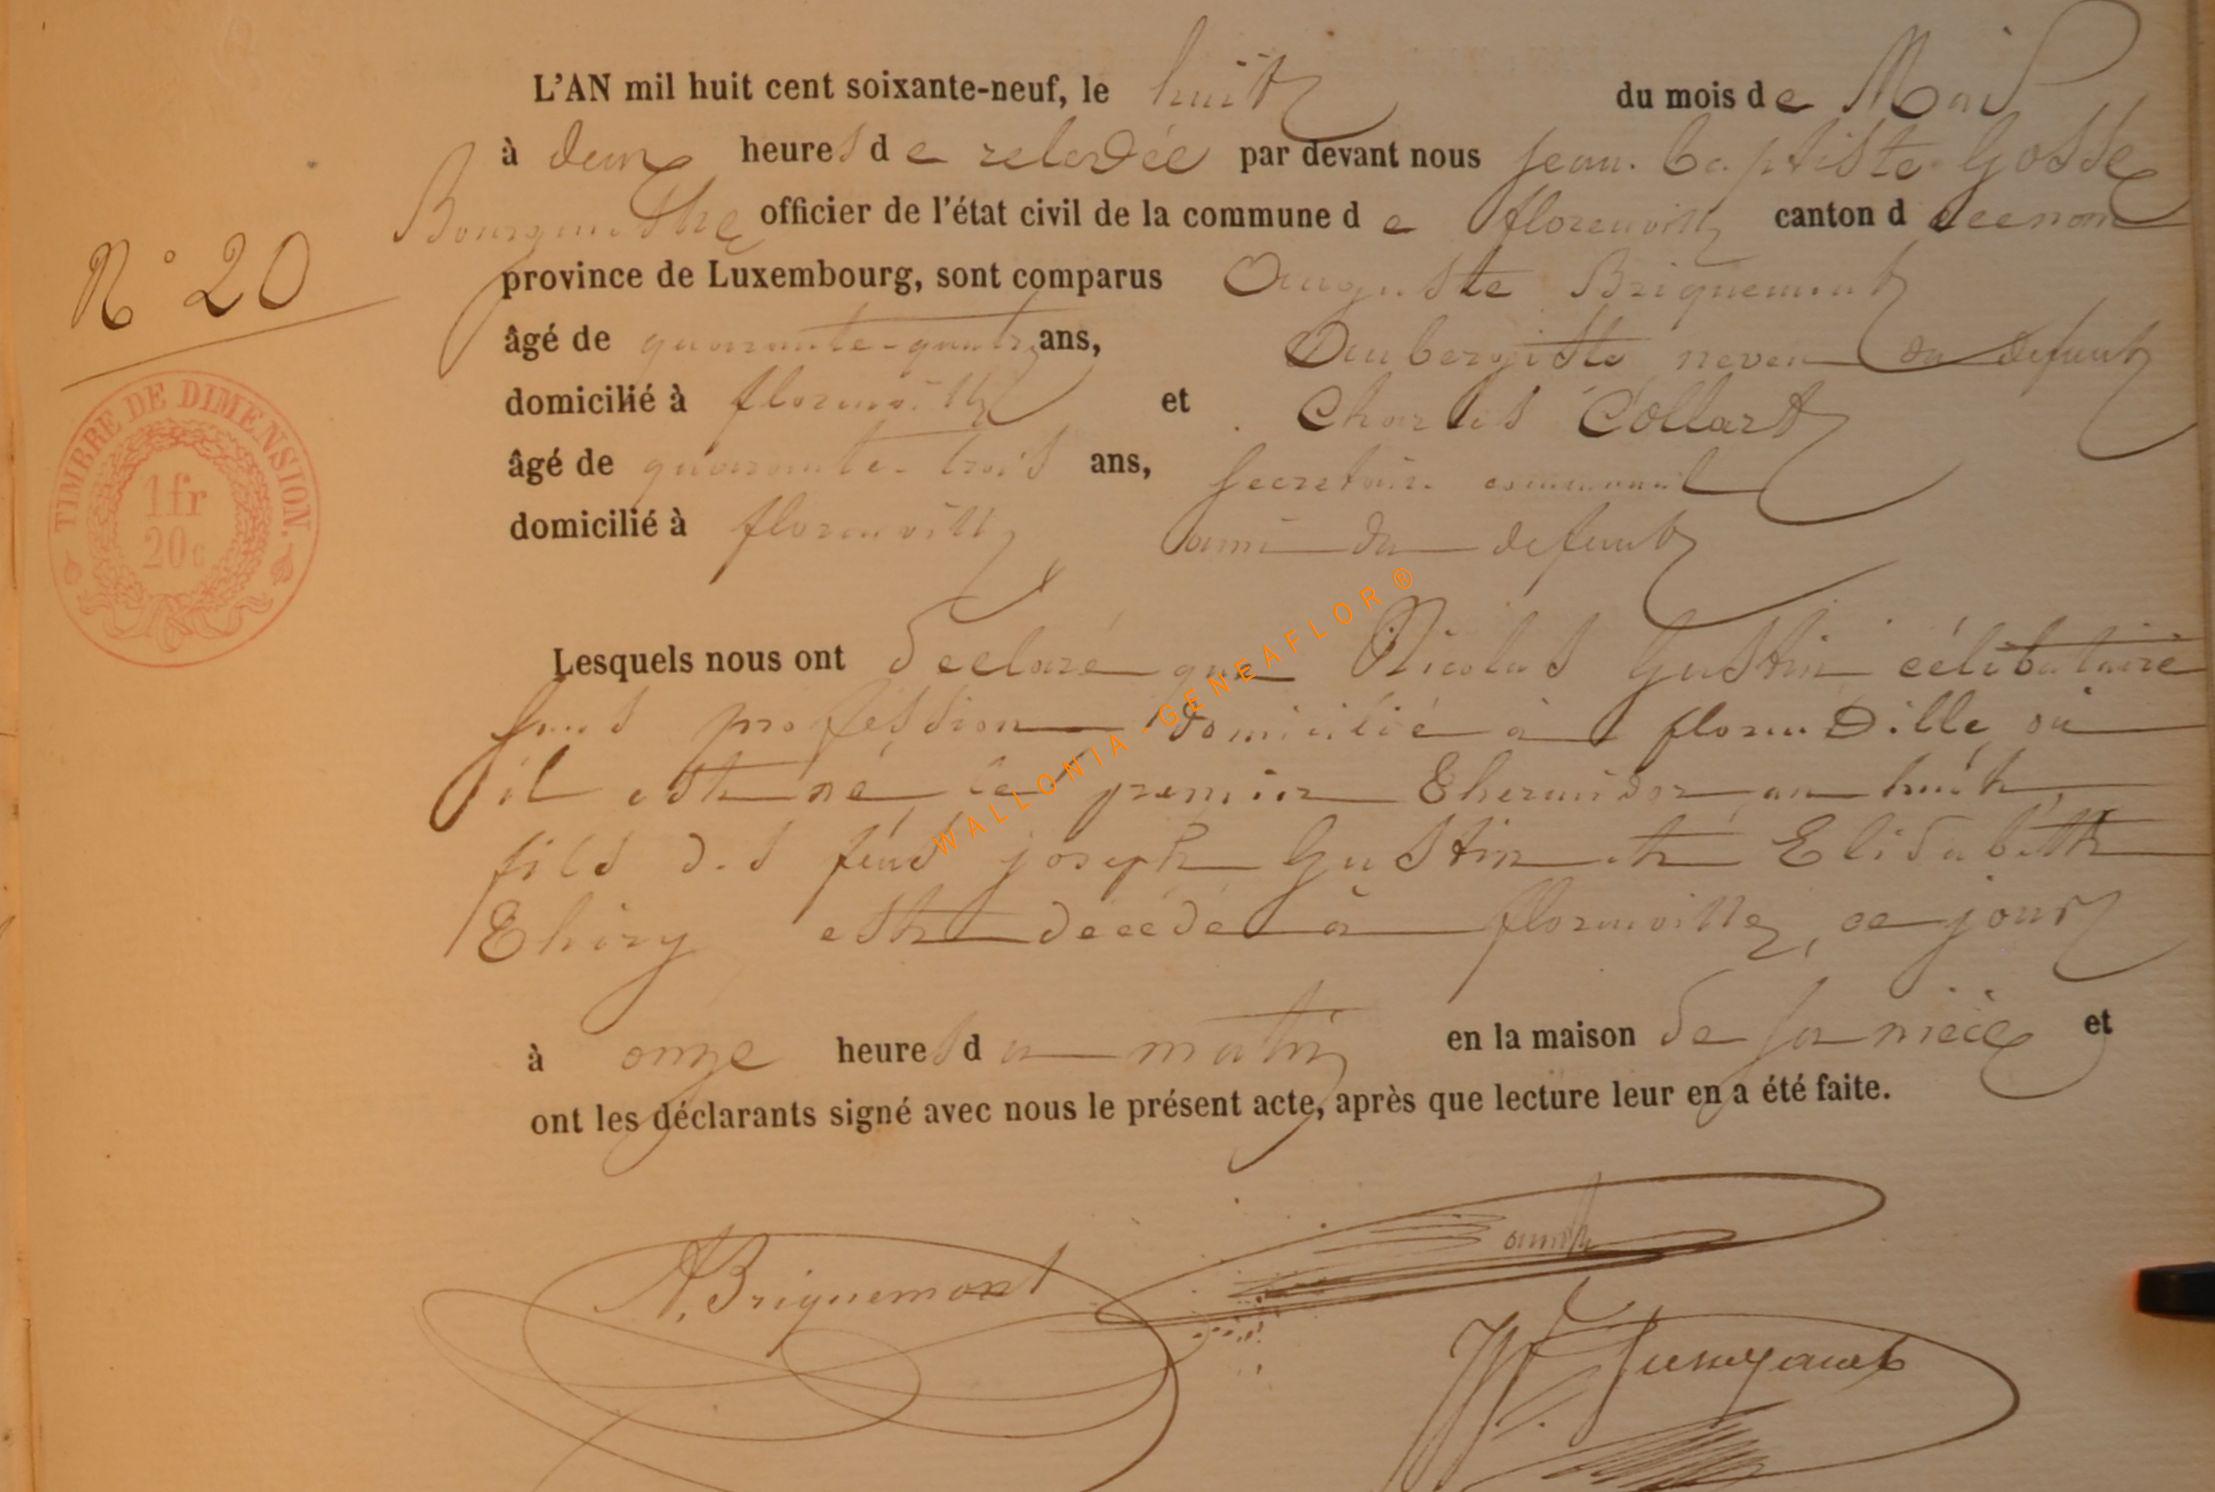 L'AN mil huit cent soixante-neuf, le huit du mois de Mai
à deux heures de relevée par devant nous Jean-Baptiste Gosse
Bourgmestre officier de l'état civil de la commune de florenville canton d
N° 20
province de Luxembourg, sont comparus Auguste Briquemont
âgé de quarante-quatre ans, Aubergiste neveu du defunt
domicilié à florenville et Charles Collart
âgé de quarante-trois ans, Secretaire communal
domicilié à florenville ami du defunt
TIMBRE DE DIMENSION.
1fr
20c
Lesquels nous ont declaré que Nicolas Gustin célibataire
sans profession domicilié à florenville où
il est né le premier Thermidor an huit
fils des feus joseph Gustin et Elisabeth
Thiry est décédé à florenville, ce jour
à onze heures du matin en la maison de sa nièce et
ont les déclarants signé avec nous le présent acte, après que lecture leur en a été faite.
A. Briquemont
WALLONIA - GENEAFLOR ®